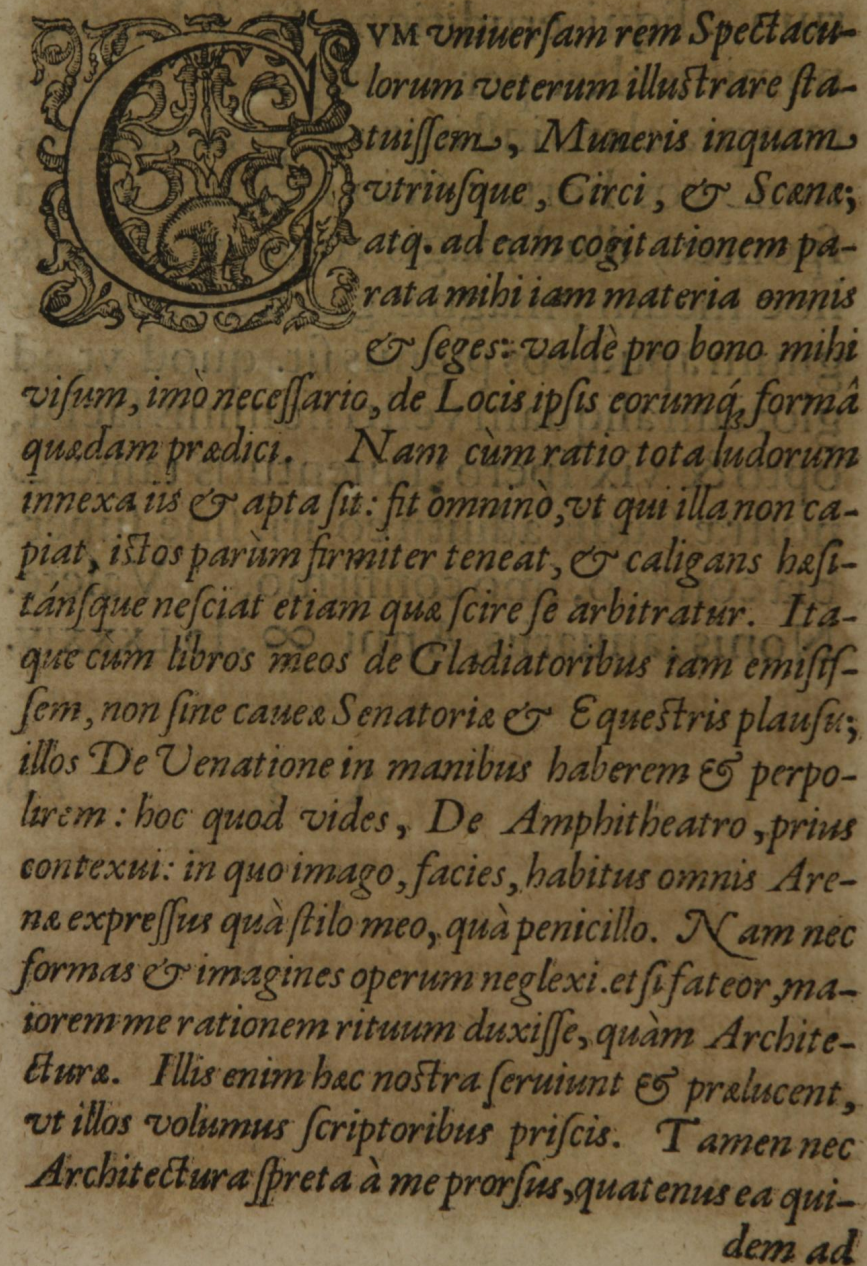 CVM vniuersam rem Spectacu-
lorum veterum illustrare sta-
tuissem, Muneris inquam
vtriusque, Circi, & Scænæ;
atq. ad eam cogitationem pa-
rata mihi iam materia omnis
& seges: valdè pro bono mihi
visum, imò necessario, de Locis ipsis eorumq́; formâ
quædam prædici. Nam cùm ratio tota ludorum
innexa iis & apta sit: fit omninò, vt qui illa non ca-
piat, istos parùm firmiter teneat, & caligans hæsi-
tánsque nesciat etiam quæ scire se arbitratur. Ita-
que cùm libros meos de Gladiatoribus iam emisis-
sem, non sine caueæ Senatoriæ & Equestris plausu;
illos De Venatione in manibus haberem & perpo-
lirem: hoc quod vides, De Amphitheatro, prius
contexui: in quo imago, facies, habitus omnis Are-
næ expressus quà stilo meo, quà penicillo. Nam nec
formas & imagines operum neglexi. etsi fateor, ma-
iorem me rationem rituum duxisse, quàm Archite-
cturæ. Illis enim hæc nostra seruiunt & prælucent,
vt illos volumus scriptoribus priscis. Tamen nec
Architectura spreta à me prorsus, quatenus ea qui-
dem ad